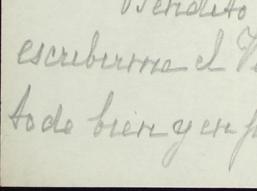 Bendito
escribirme el V
todo bien y en p